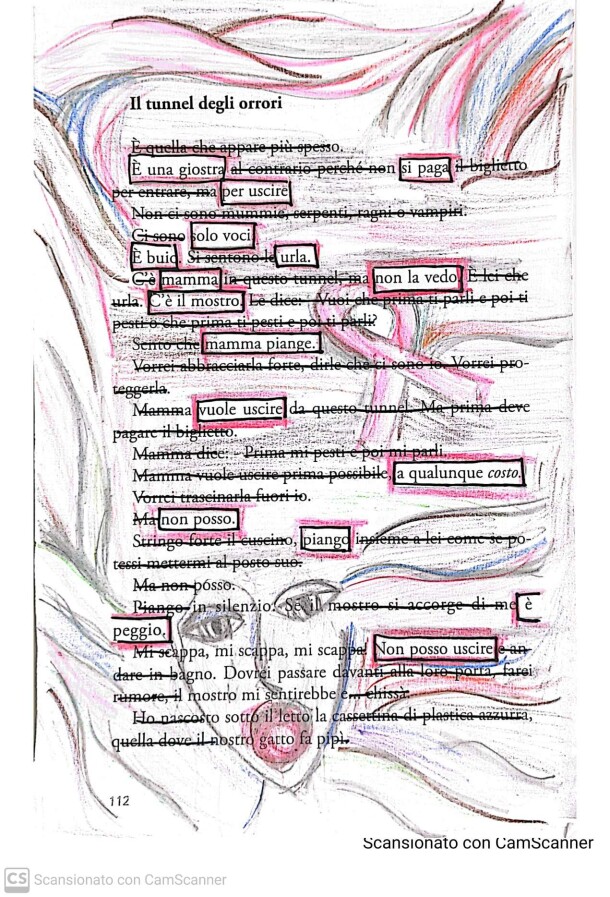 Il tunnel degli orrori
È quella che appare più spesso.
È una giostra al contrario perché non si paga il biglietto
per entrare, ma per uscire
Non ci sono mummie, serpenti, ragni o vampiri.
Ci sono solo voci
È buio. Si sentono le urla.
C'è mamma in questo tunnel ma non la vedo. È lei che
urla. C'è il mostro. Le dice: - Vuoi che prima ti parli e poi ti
pesti o che prima ti pesti e poi ti parli?
Sento che mamma piange.
Vorrei abbracciarla forte, dirle che ci sono io. Vorrei pro-
teggerla.
Mamma vuole uscire da questo tunnel. Ma prima deve
pagare il biglietto.
Mamma dice: - Prima mi pesti e poi mi parli.
Mamma vuole uscire prima possibile, a qualunque costo.
Vorrei trascinarla fuori io.
Ma non posso.
Stringo forte il cuscino, piango insieme a lei come se po-
tessi mettermi al posto suo.
Ma non posso.
Piango in silenzio. Se il mostro si accorge di me è
peggio.
Mi scappa, mi scappa, mi scappa! Non posso uscire e an-
dare in bagno. Dovrei passare davanti alla loro porta, farei
rumore, il mostro mi sentirebbe e... chissà.
Ho nascosto sotto il letto la cassettina di plastica azzurra,
quella dove il nostro gatto fa pipì.
112
Scansionato con CamScanner
CS Scansionato con CamScanner